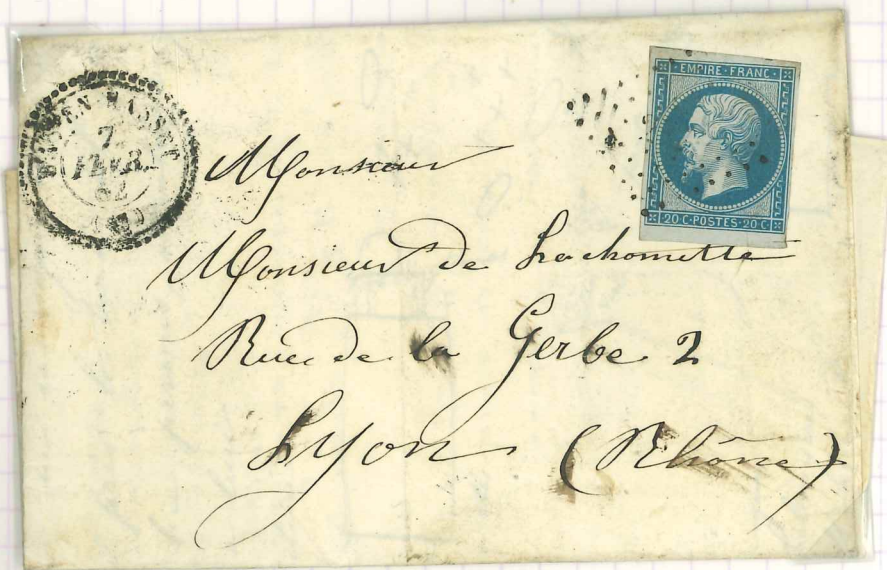 7
FEVR.
62
EMPIRE · FRANC ·
20 C · POSTES · 20 C ·
Monsieur
Monsieur de Lachomette
Rue de la Gerbe 2
Lyon (Rhône)